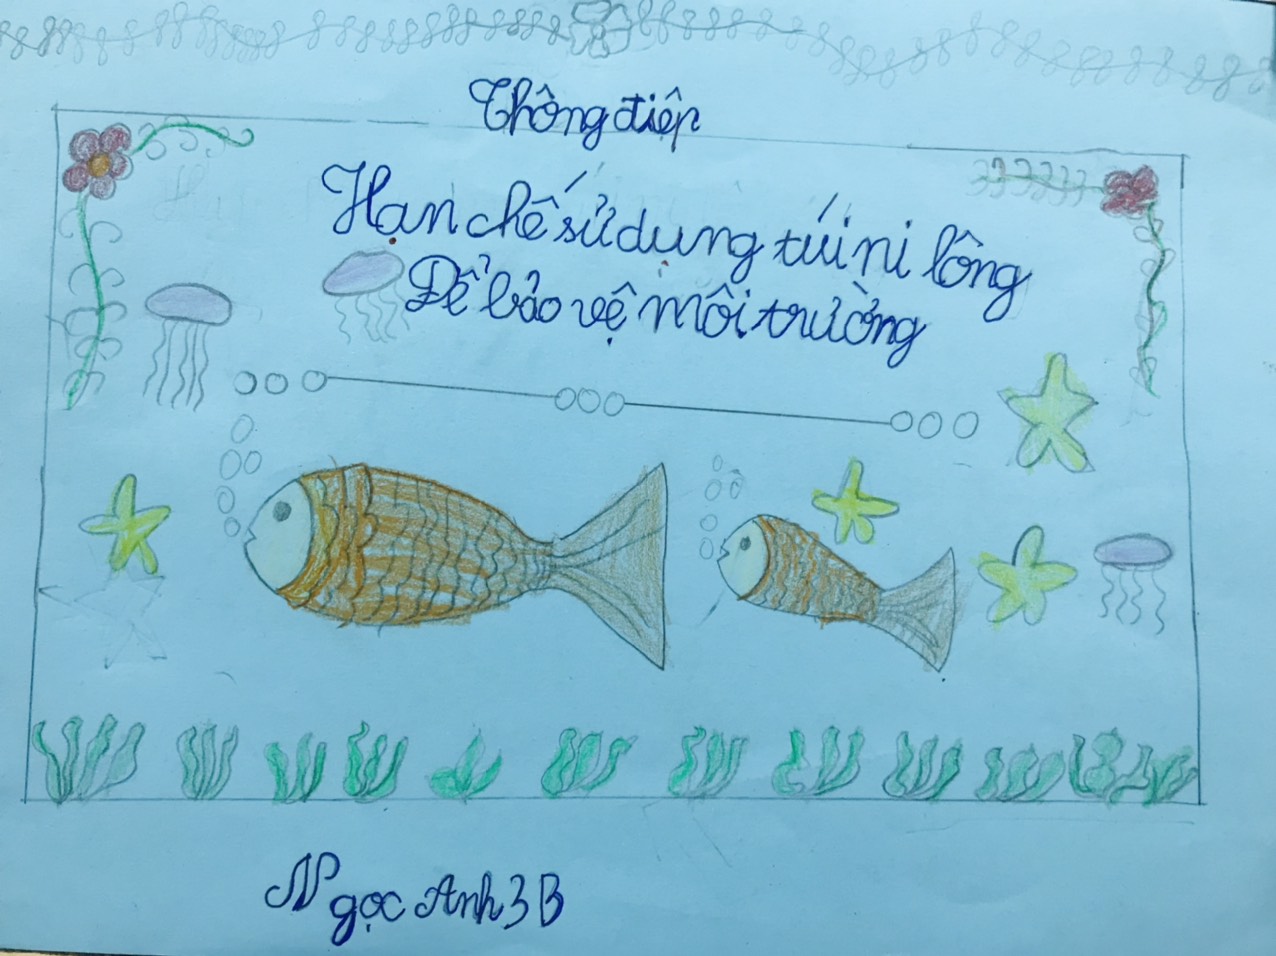 Thông điệp
Hạn chế sử dụng túi ni lông
Để bảo vệ môi trường
Ngọc Anh 3B